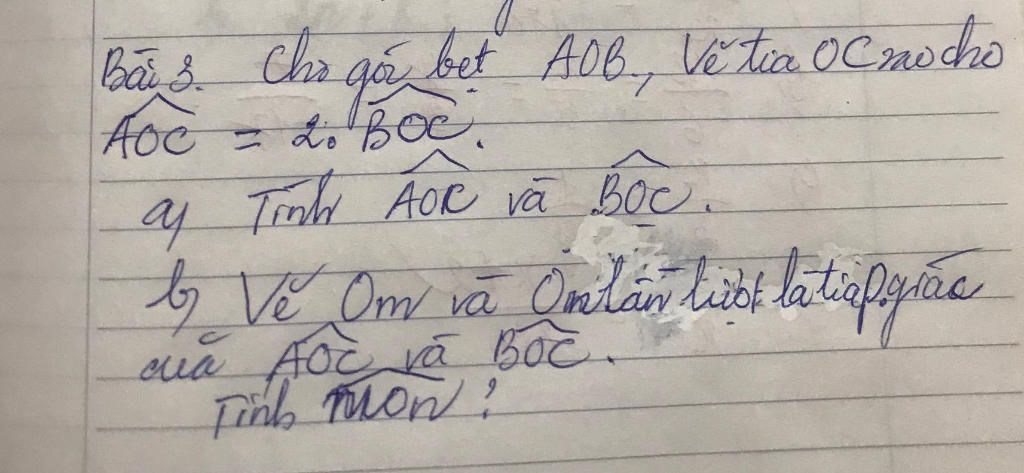 Bài 3. Cho góc bẹt AOB, Vẽ tia OC sao cho
AOC = 2. BOC.
a) Tính AOC và BOC.
b) Vẽ Om và On lần lượt là tia p.giác
của AOC và BOC.
Tính mOn?